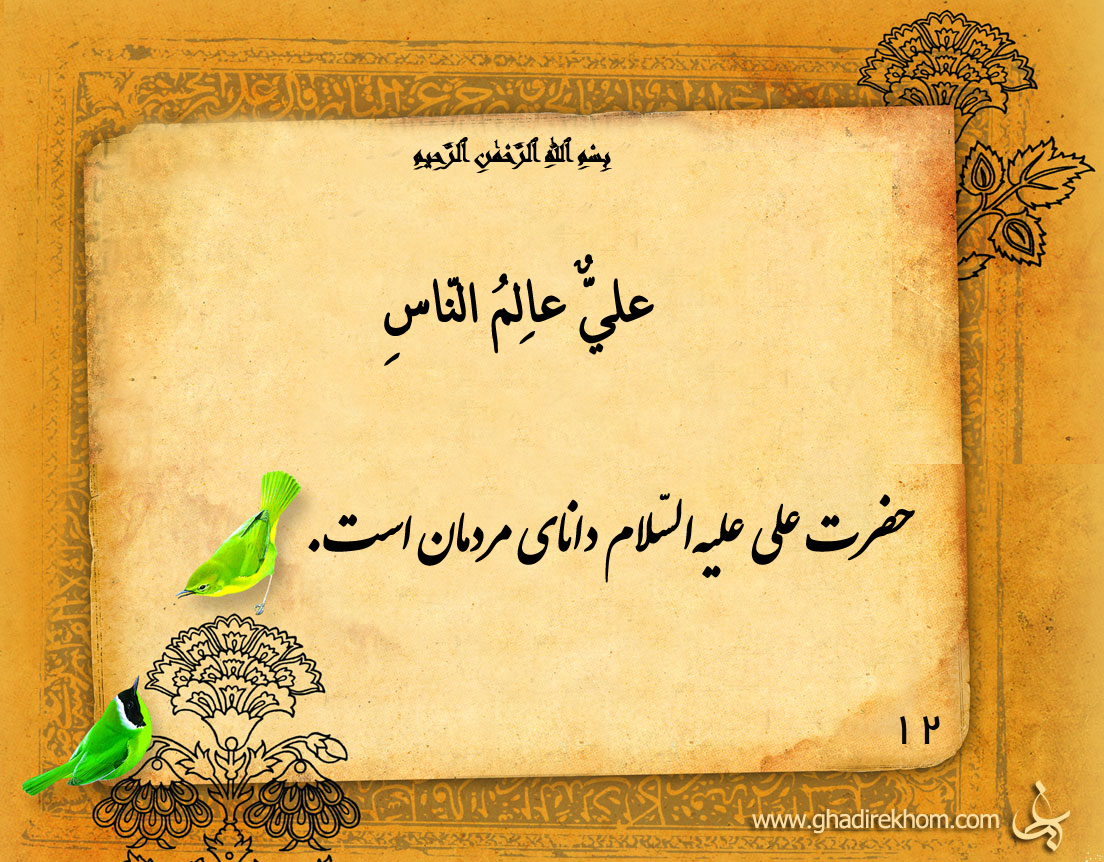 بِسْمِ ٱللَّهِ ٱلرَّحْمَٰنِ ٱلرَّحِيمِ
عليٌّ عالِمُ النّاسِ
حضرت علی علیه‌السّلام دانای مردمان است.
۱۲
www.ghadirekhom.com